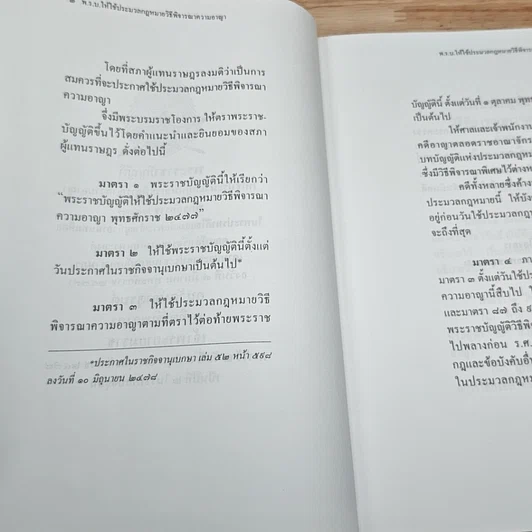 พ.ร.บ.ให้ใช้ประมวลกฎหมายวิธีพิจารณาความอาญา
โดยที่สภาผู้แทนราษฎรลงมติว่าเป็นการ
สมควรที่จะประกาศใช้ประมวลกฎหมายวิธีพิจารณา
ความอาญา
จึ่งมีพระบรมราชโองการ ให้ตราพระราช-
บัญญัติขึ้นไว้โดยคำแนะนำและยินยอมของสภา
ผู้แทนราษฎร ดั่งต่อไปนี้
มาตรา ๑ พระราชบัญญัตินี้ให้เรียกว่า
“พระราชบัญญัติให้ใช้ประมวลกฎหมายวิธีพิจารณา
ความอาญา พุทธศักราช ๒๔๗๗”
มาตรา ๒ ให้ใช้พระราชบัญญัตินี้ตั้งแต่
วันประกาศในราชกิจจานุเบกษาเป็นต้นไป*
มาตรา ๓ ให้ใช้ประมวลกฎหมายวิธี
พิจารณาความอาญาตามที่ตราไว้ต่อท้ายพระราช
*ประกาศในราชกิจจานุเบกษา เล่ม ๕๒ หน้า ๕๙๘
ลงวันที่ ๑๐ มิถุนายน ๒๔๗๘
พ.ร.บ.ให้ใช้ประมวลกฎหมายวิธีพิจารณ
บัญญัตินี้ ตั้งแต่วันที่ ๑ ตุลาคม พุทธ
เป็นต้นไป
ให้ศาลและเจ้าพนักงาน
คดีอาญาตลอดราชอาณาจักร
บทบัญญัติแห่งประมวลกฎหมา
ซึ่งมีวิธีพิจารณาพิเศษไว้ต่างห
คดีทั้งหลายซึ่งค้าง
ประมวลกฎหมายนี้ ให้บัง
อยู่ก่อนวันใช้ประมวลกฎหม
จะถึงที่สุด
มาตรา ๔ ภา
มาตรา ๓ ตั้งแต่วันใช้ป
ความอาญานี้สืบไป ให้
และมาตรา ๘๗ ถึง ๙
พระราชบัญญัติวิธีพิ
ไปพลางก่อน ร.ศ.
กฎและข้อบังคับอื่น
ในประมวลกฎหม